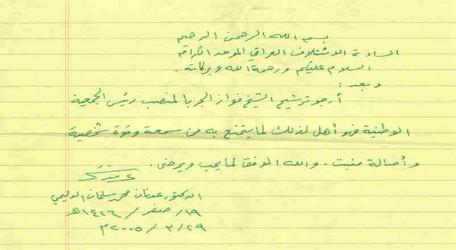 بسم الله الرحمن الرحيم
السادة الائتلاف العراقي الموحد الكرام
السلام عليكم ورحمة الله وبركاته .
وبعد :
أرجو ترشيح الشيخ فواز الجربا لمنصب رئيس الجمعية
الوطنية فهو أهل لذلك لما يتمتع به من سمعة وقوة شخصية
وأصالة منبت . والله الموفق لما يحب ويرضى .
الدكتور عدنان محمد سلمان الدليمي
١٩ / صفر / ١٤٢٦ هـ
٢٩ / ٣ / ٢٠٠٥ م